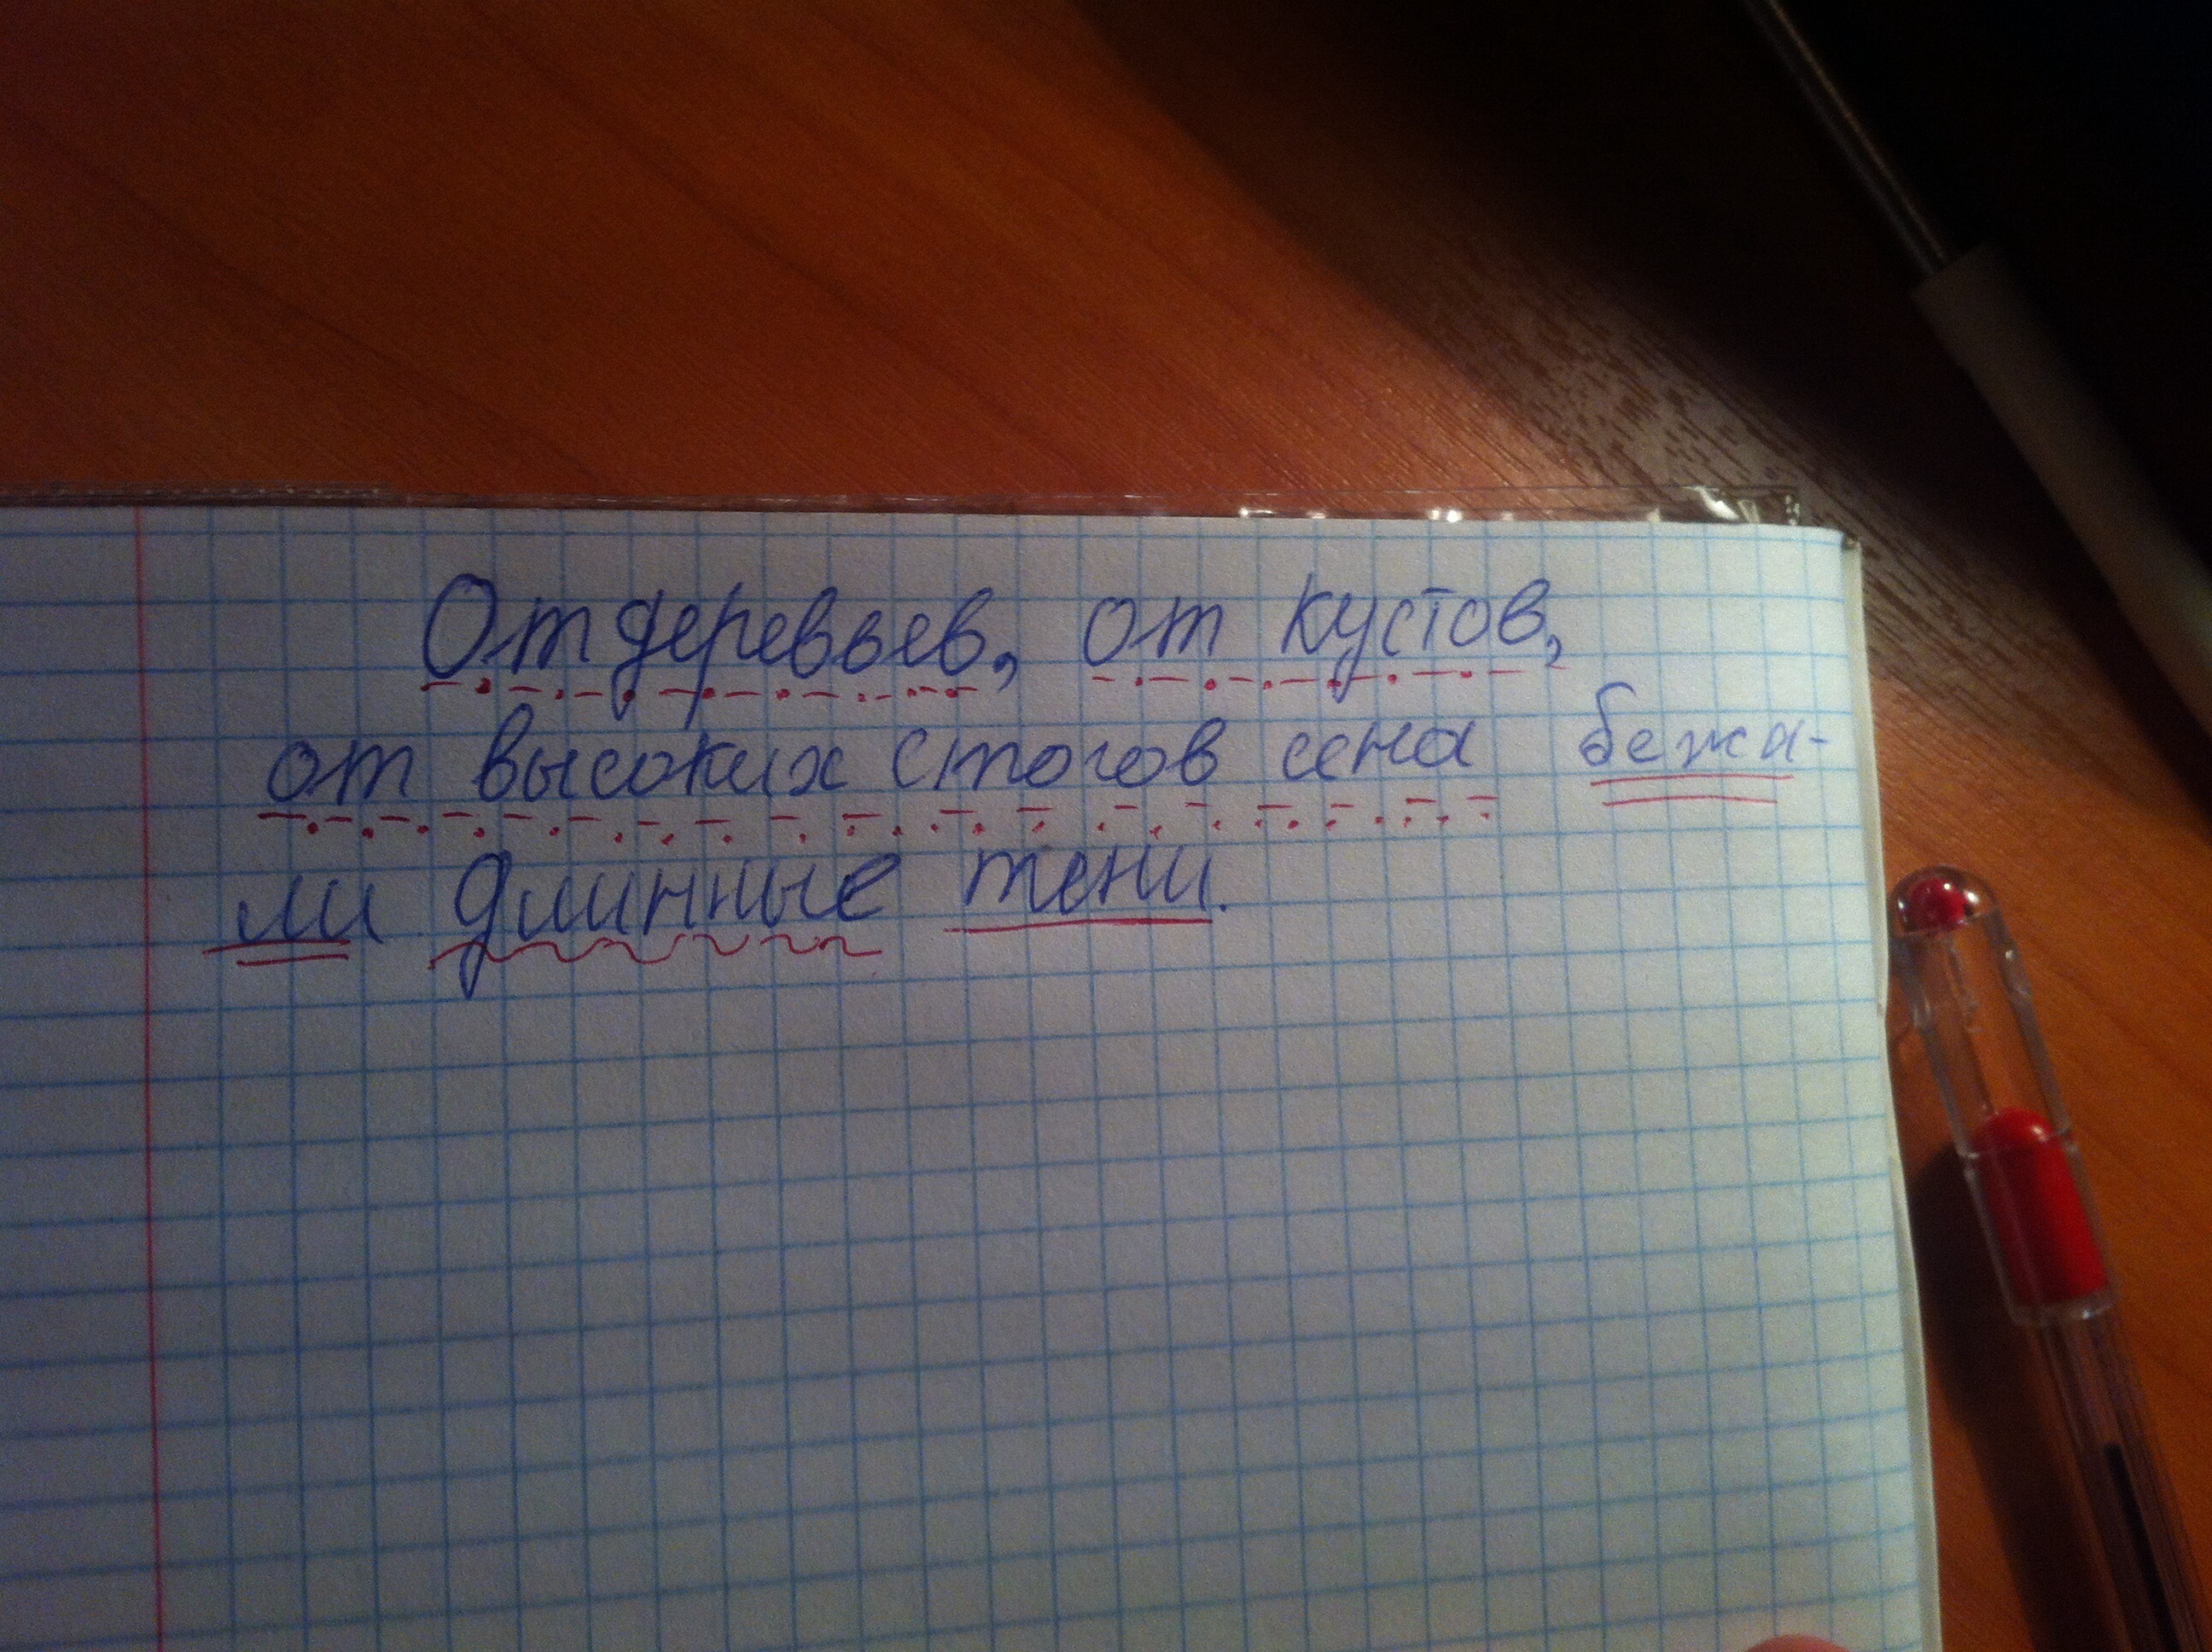 От деревьев, от кустов,
от высоких стогов сена бежа-
ли длинные тени.